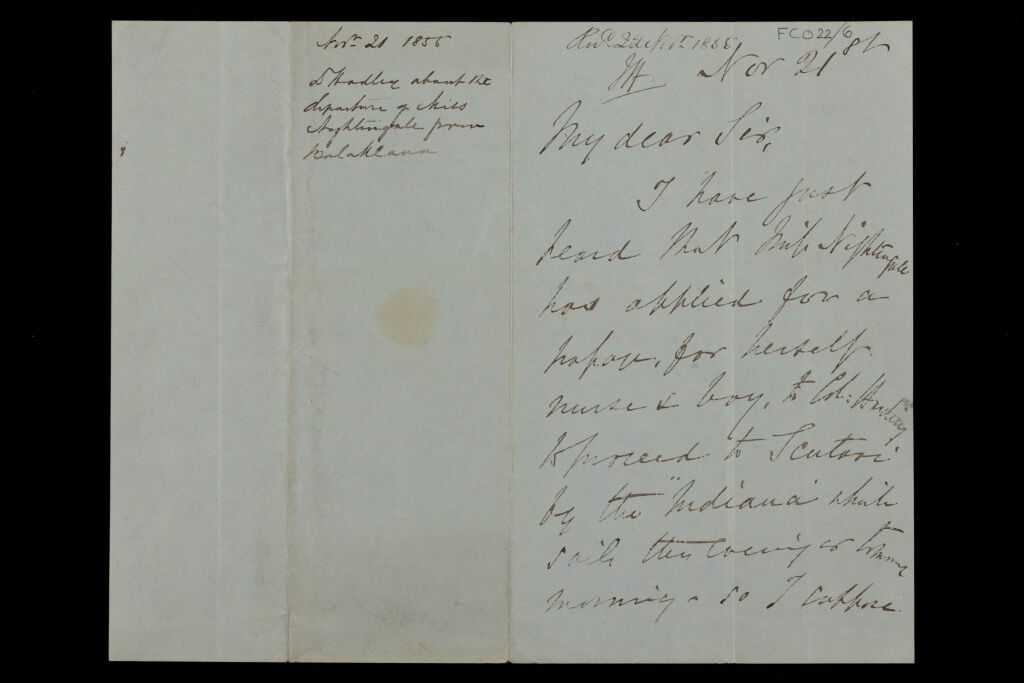 Novr 21 1855
Dr Hadley about the
departure of Miss
Nightingale from
Balaklava
Recd 22 Novr 1855
FCO22/6
Nov 21st
My dear Sir,
I have just
heard that Miss Nightingale
has applied for a
passage, for herself
nurse & boy, to Col:
to proceed to Scutari
by the "Indiana" which
sails this evening or tomorrow
morning - so I suppose